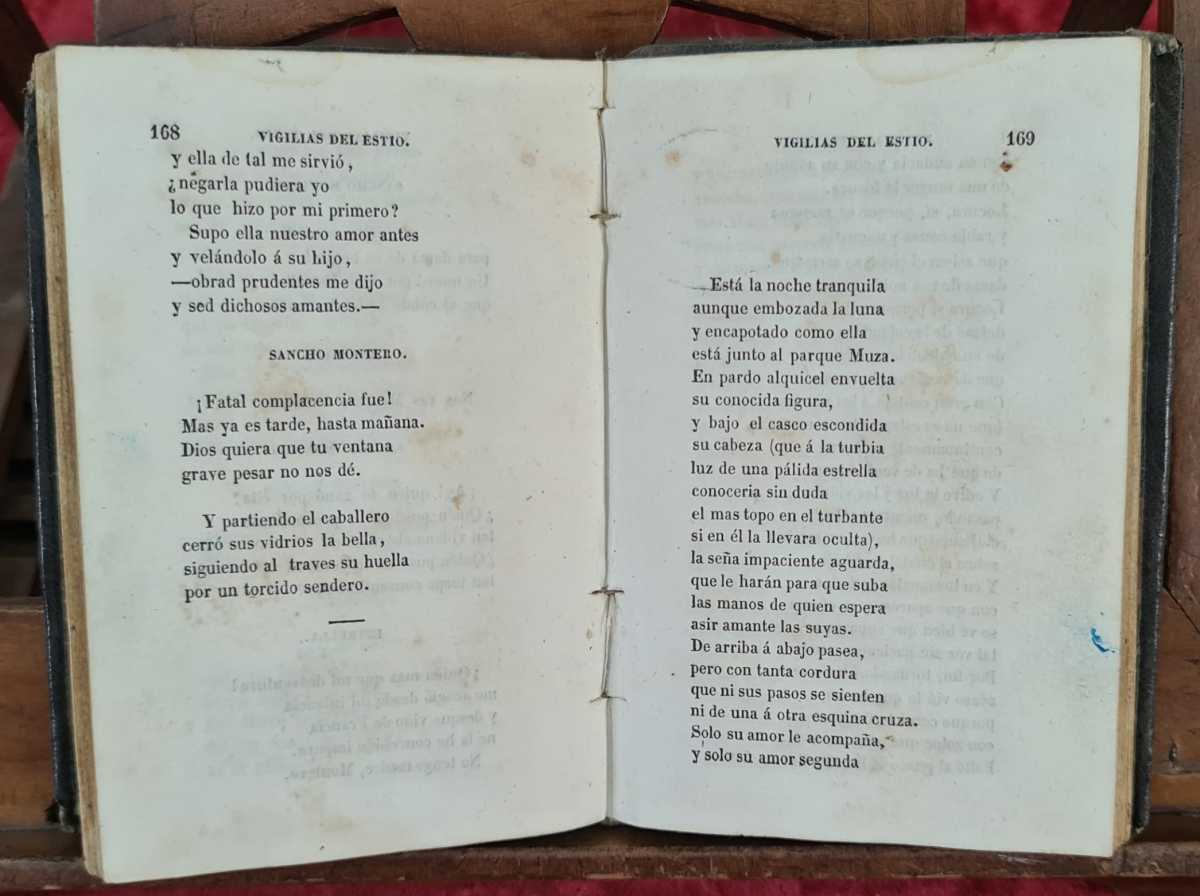 168
VIGILIAS DEL ESTIO.
y ella de tal me sirvió,
¿negarla pudiera yo
lo que hizo por mi primero?
Supo ella nuestro amor antes
y velándolo á su hijo,
—obrad prudentes me dijo
y sed dichosos amantes.—
SANCHO MONTERO.
¡Fatal complacencia fue!
Mas ya es tarde, hasta mañana.
Dios quiera que tu ventana
grave pesar no nos dé.
Y partiendo el caballero
cerró sus vidrios la bella,
siguiendo al traves su huella
por un torcido sendero.
VIGILIAS DEL ESTIO.
169
Está la noche tranquila
aunque embozada la luna
y encapotado como ella
está junto al parque Muza.
En pardo alquicel envuelta
su conocida figura,
y bajo el casco escondida
su cabeza (que á la turbia
luz de una pálida estrella
conoceria sin duda
el mas topo en el turbante
si en él la llevara oculta),
la seña impaciente aguarda,
que le harán para que suba
las manos de quien espera
asir amante las suyas.
De arriba á abajo pasea,
pero con tanta cordura
que ni sus pasos se sienten
ni de una á otra esquina cruza.
Solo su amor le acompaña,
y solo su amor segunda